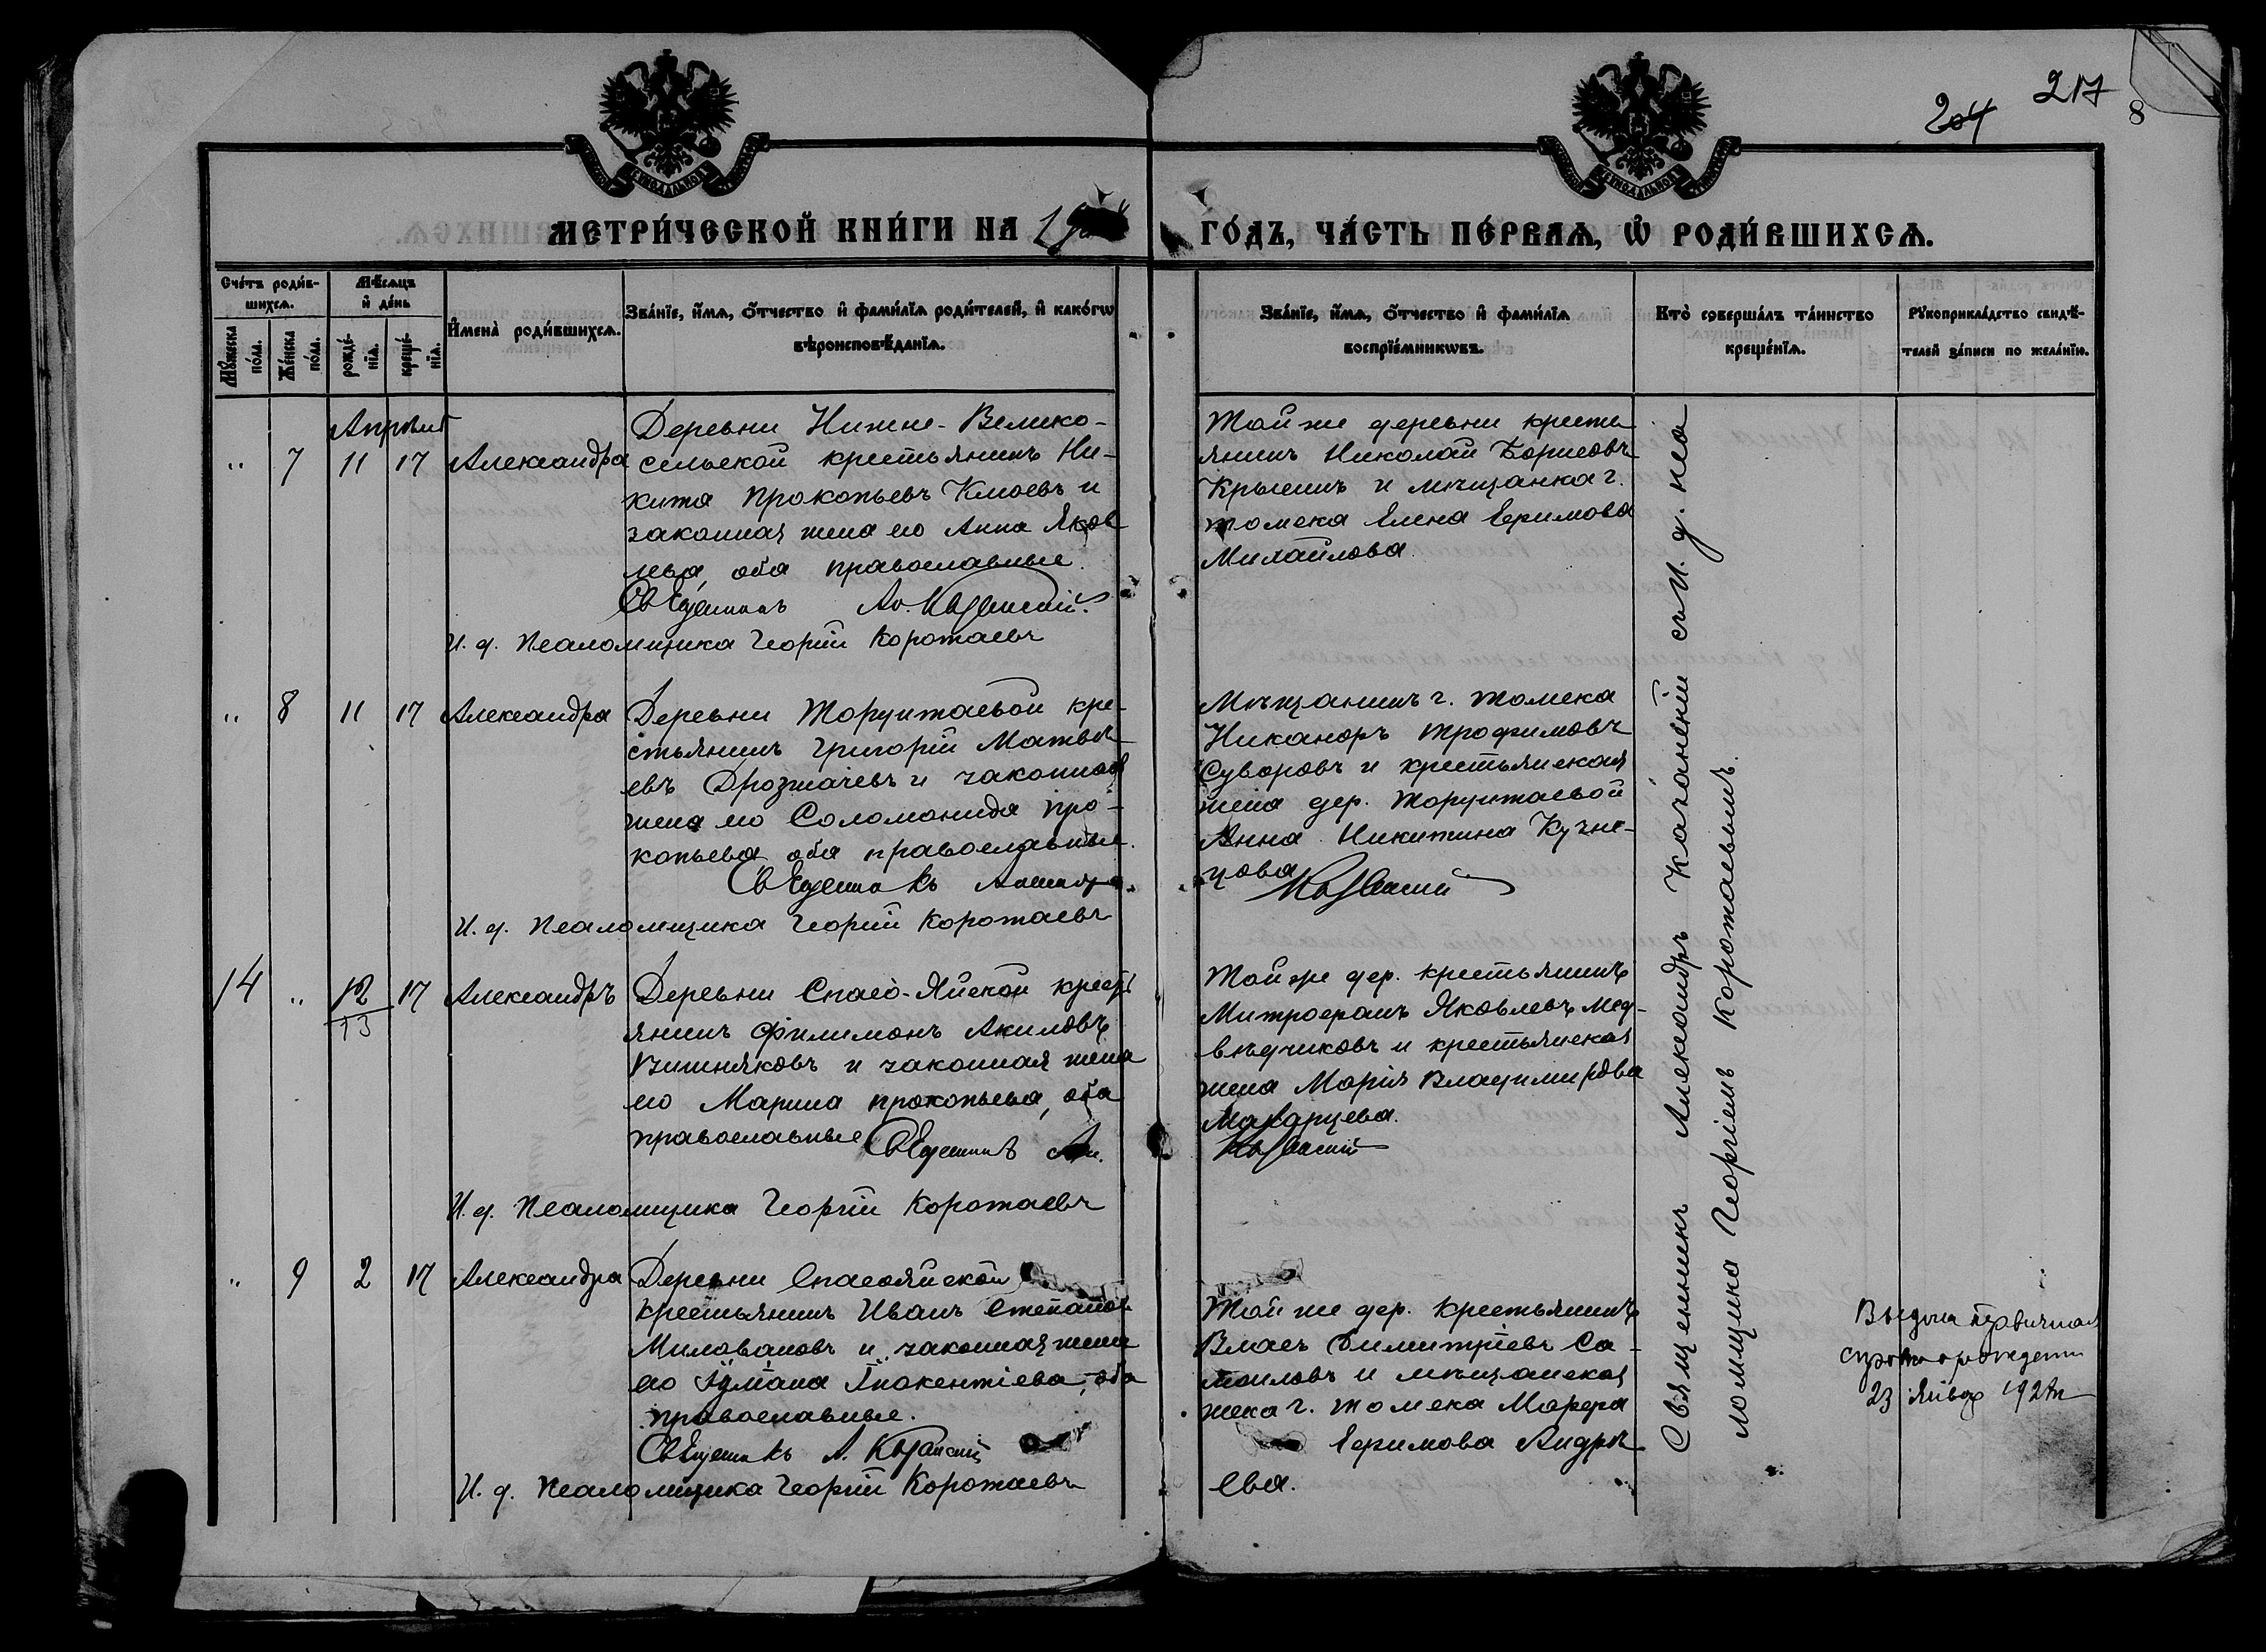 204 217 8
МЕТРИ́ЧЕСКОЙ КНИ́ГИ НА 19
ГО́ДЪ, ЧА́СТЬ ПЕ́РВАѦ, Ѡ҆ РОДИ́ВШИХСѦ.
Сче́тъ роди́в-
шихсѧ.
Мꙋ́жеска по́ла.
Же́нска по́ла.
Мѣ́сѧцъ
и҆ де́нь
рожде́-
нїѧ.
креще́-
нїѧ.
И҆мена̀ роди́вшихсѧ.
Зва́нїе, и҆́мѧ, ѻ҆́тчество и҆ фами́лїѧ роди́телей, и҆ како́гѡ
вѣроисповѣ́данїѧ.
Зва́нїе, и҆́мѧ, ѻ҆́тчество и҆ фами́лїѧ
воспрїе́мникѡвъ.
Кто̀ соверша́лъ та́инство
креще́нїѧ.
Рꙋкоприкла́дство свидѣ́-
телей за́писи по жела́нїю.
Апрѣль
" 7 11 17 Александра
Деревни Нижне-Велико-
сельской крестьянинъ Ни-
кита Прокопьевъ и
законная жена его Анна Яков
лева, оба православные.
Священникъ Ал.
И. д. Псаломщика Георгій Коротаевъ
Той же деревни кресть
янинъ Николай Борисовъ
и мѣщанка г.
Томска Елена Ефимова
Михайлова.
" 8 11 17 Александра
Деревни Торунтаевой кре-
стьянинъ Григорій Матвѣ
евъ и законная
жена его Соломонида Про-
копьева, оба православные.
Священникъ Александръ
И. д. Псаломщика Георгій Коротаевъ
Мѣщанинъ г. Томска
Никаноръ Трофимовъ
Суворовъ и крестьянская
жена дер. Торунтаевой
Анна Никитина Кузне-
цова
14 " 12 17 Александръ
13
Деревни Спасо-Яйской крест
янинъ Филимонъ Акиловъ
Вишняковъ и законная жена
его Марина Прокопьева, оба
православные Священникъ Ал.
И. д. Псаломщика Георгій Коротаевъ
Той же дер. крестьянинъ
Митрофанъ Яковлевъ Мед-
вѣдчиковъ и крестьянская
жена Марія Владимирова
Макарцева.
" 9 2 17 Александра
Деревни Спасояйской
крестьянинъ Иванъ Степанов
Миловановъ и законная жена
его Інокентіева, оба
православные.
Священникъ А.
И. д. Псаломщика Георгій Коротаевъ
Той же дер. крестьянинъ
Власъ Димитріевъ Са-
моиловъ и мѣщанская
жена г. Томска Марфа
Ефимова Андрѣ
ева.
Священникъ Александръ съ И. д. пса
ломщика Георгіемъ Коротаевымъ.
Выдана
о рождении
23 Январ